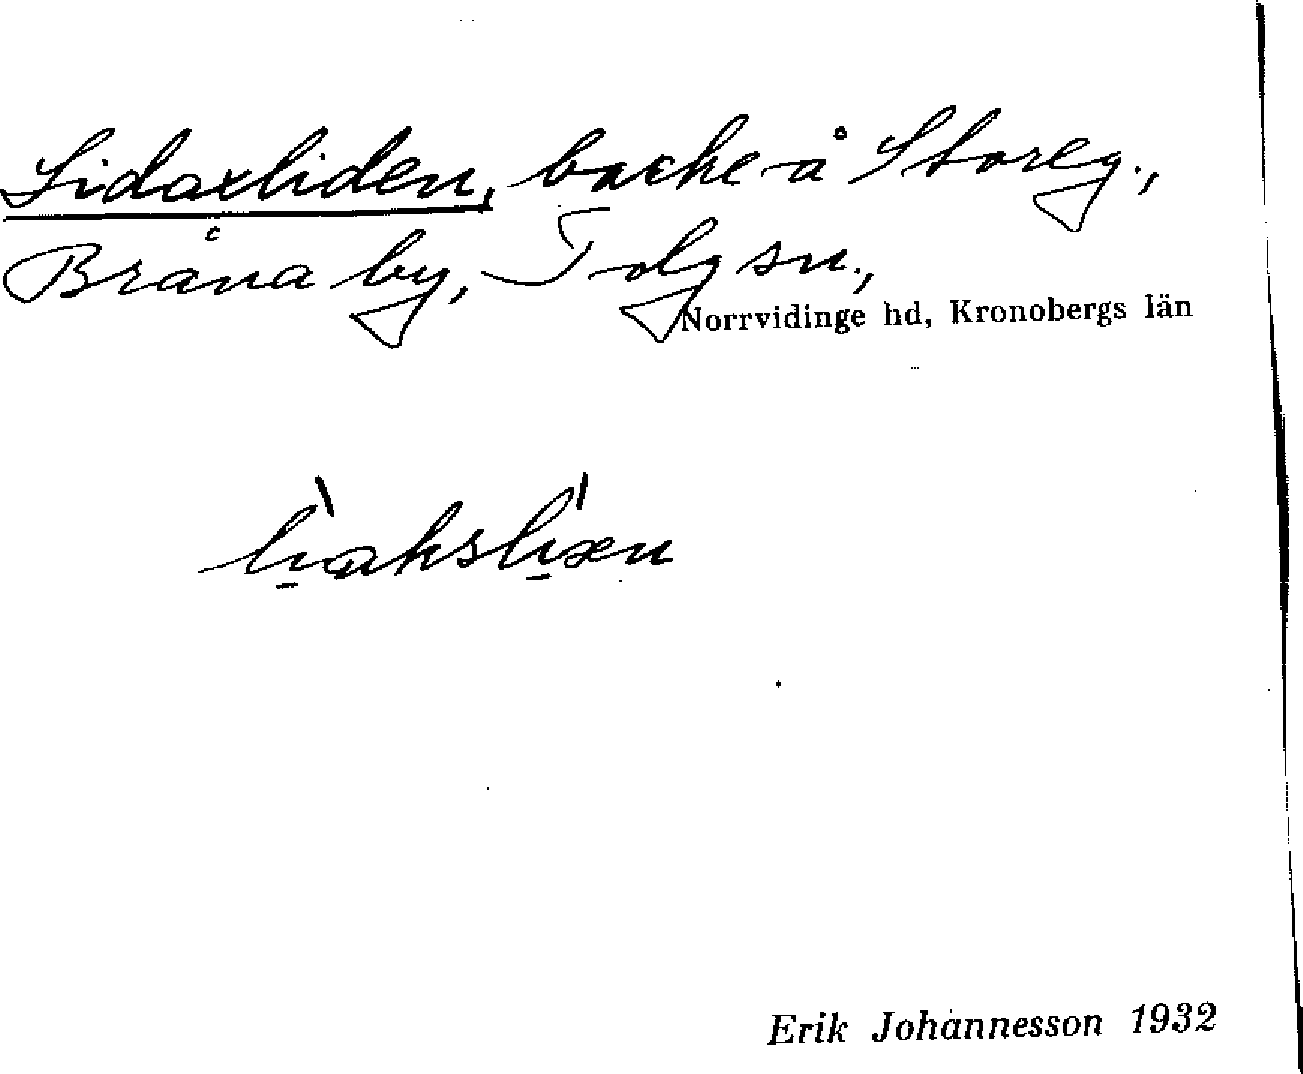 Lidaxliden, backe å Storeg.,
Bråna by, Tolg sn.,
Norrvidinge hd, Kronobergs län
Erik Johannesson 1932